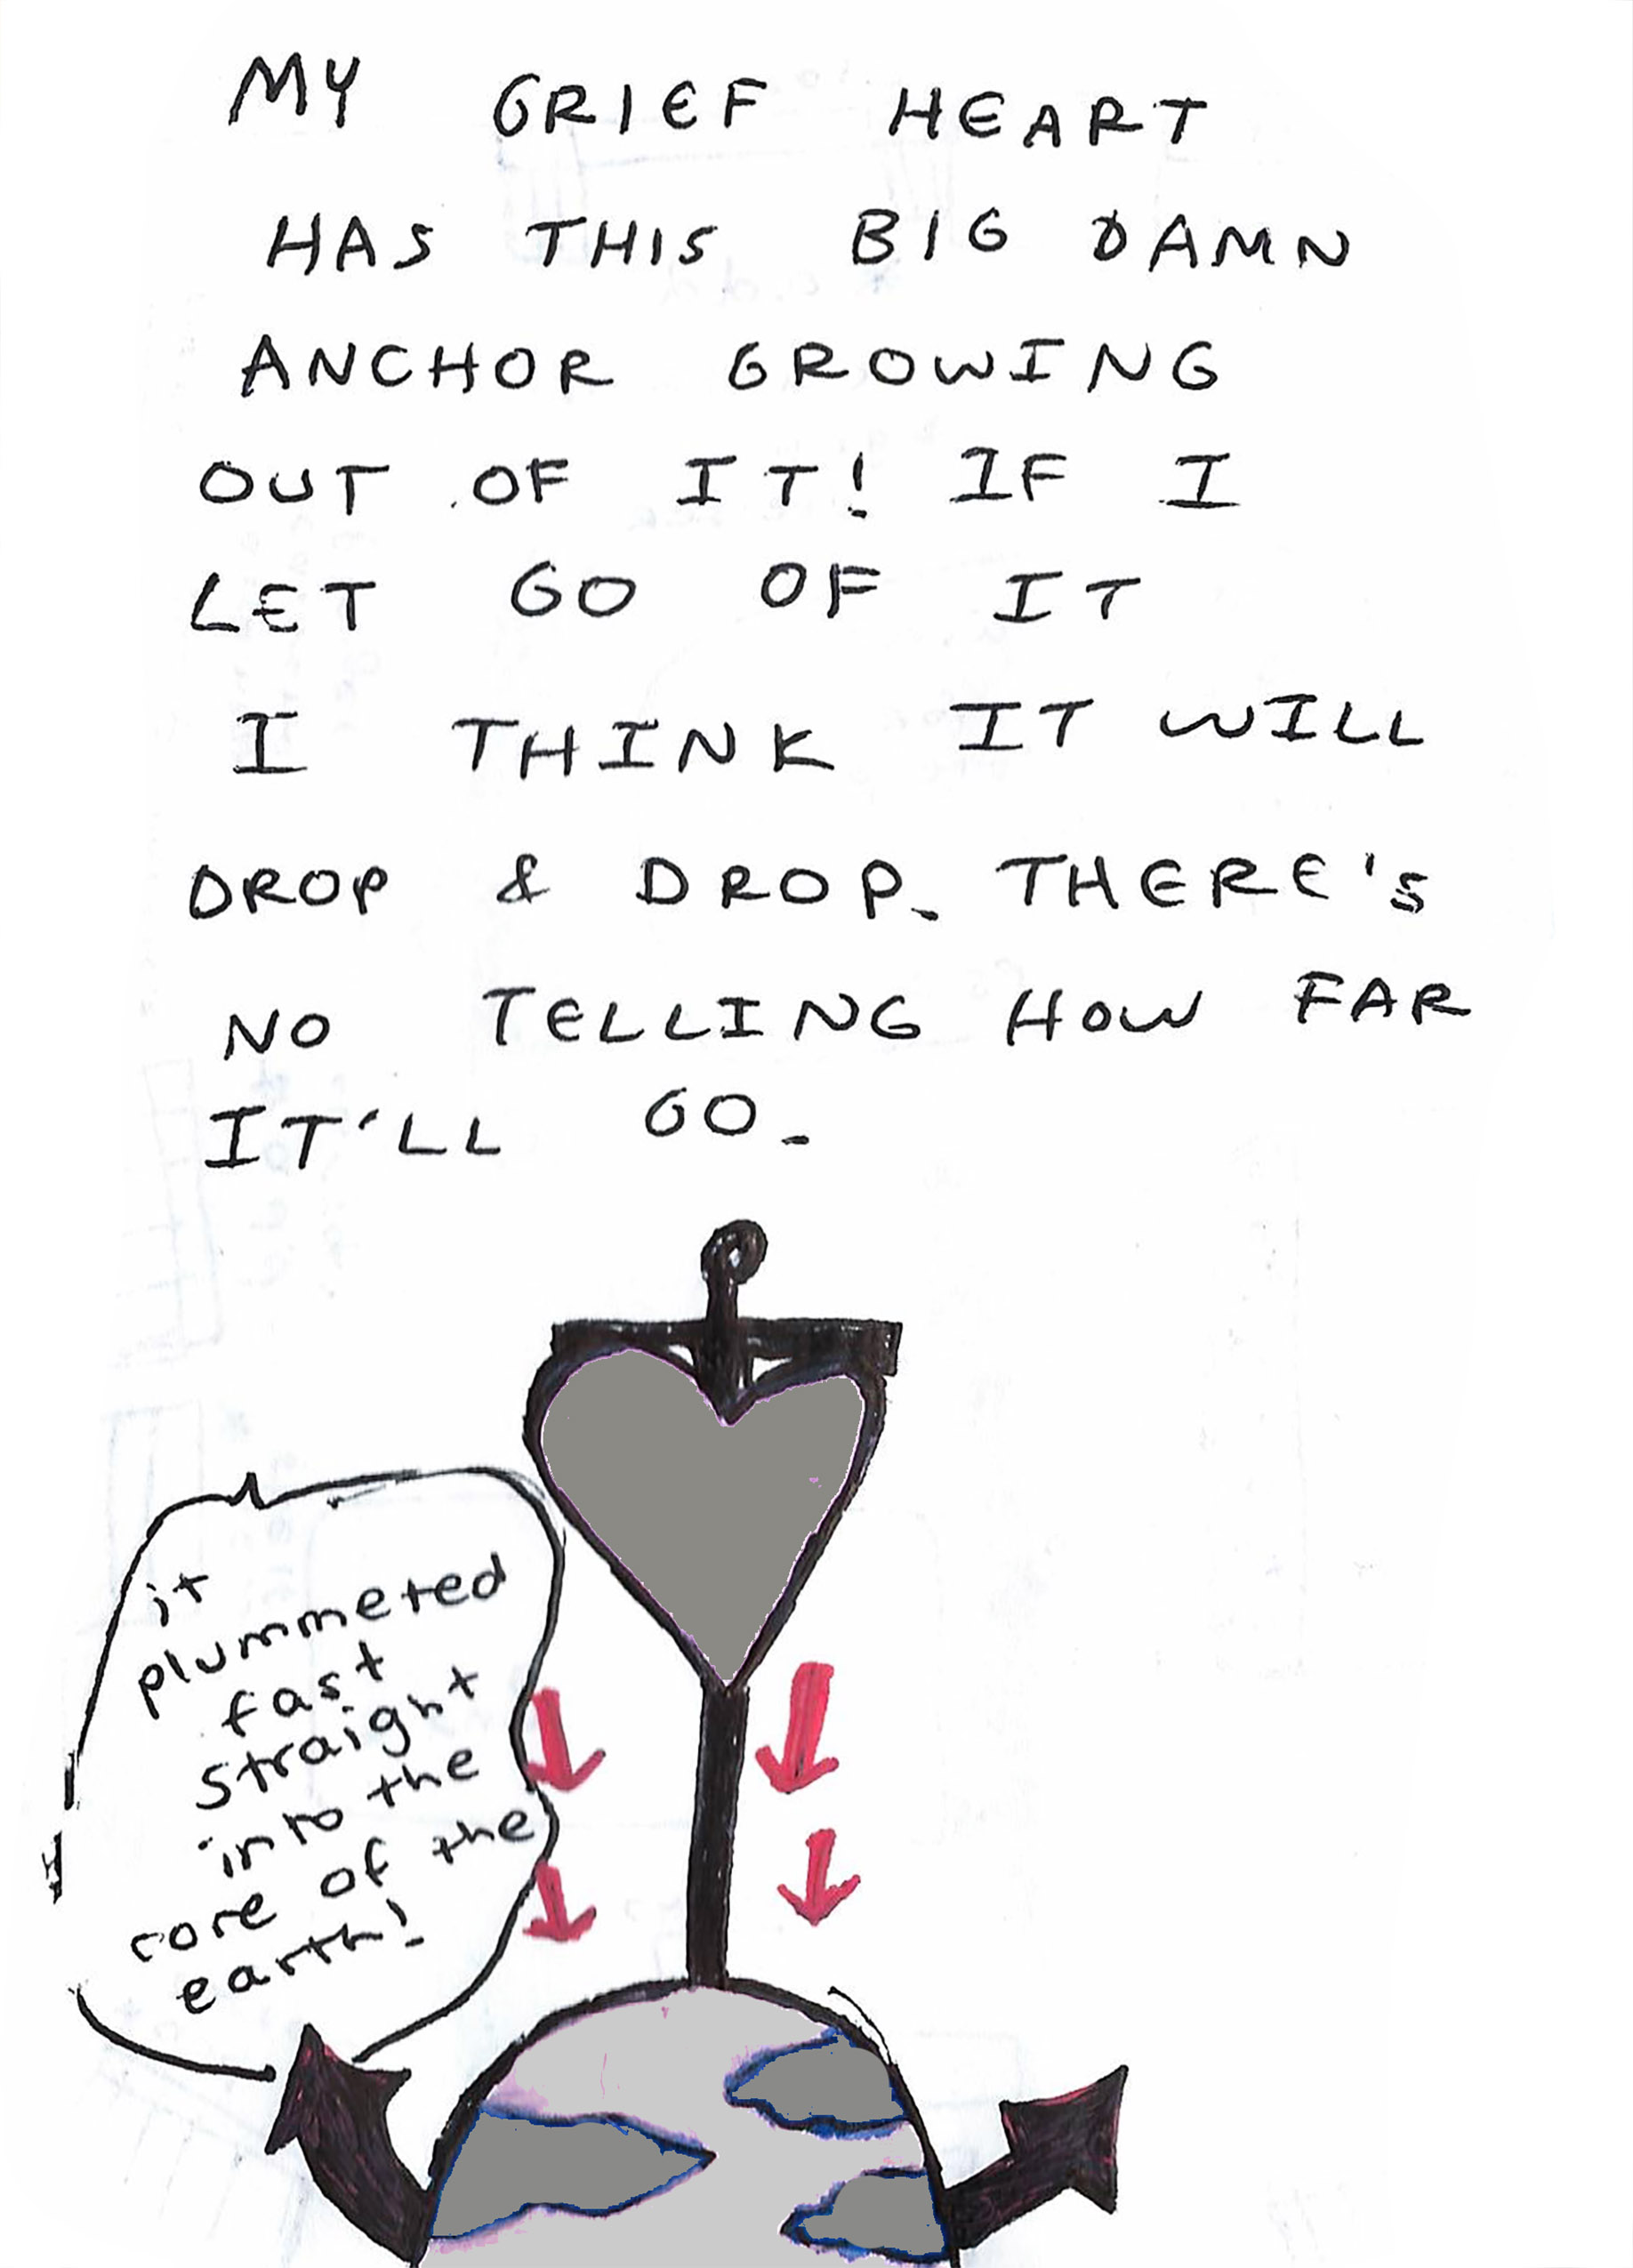 MY GRIEF HEART
HAS THIS BIG DAMN
ANCHOR GROWING
OUT OF IT! IF I
LET GO OF IT
I THINK IT WILL
DROP & DROP. THERE'S
NO TELLING HOW FAR
IT'LL GO.
it
plummeted
fast
straight
into the
core of the
earth!